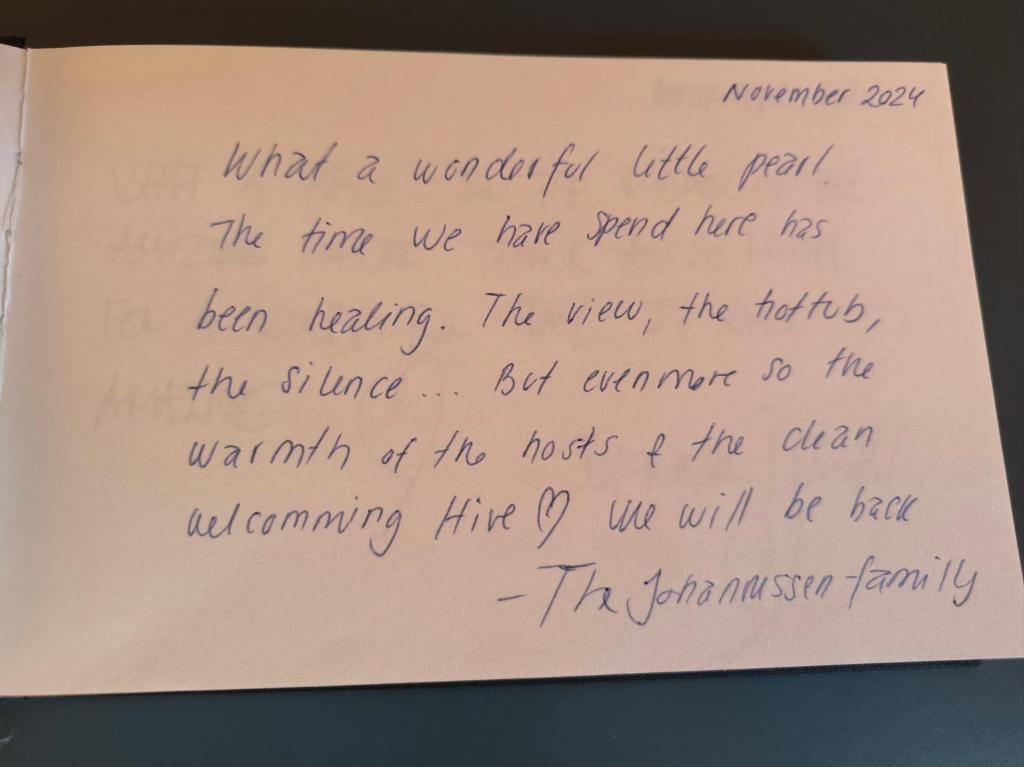 November 2024
What a wonderful little pearl.
The time we have spend here has
been healing. The view, the hottub,
the silence... But evenmore so the
warmth of the hosts & the clean
welcomming Hive ♡ We will be back
- The Johannessen-family